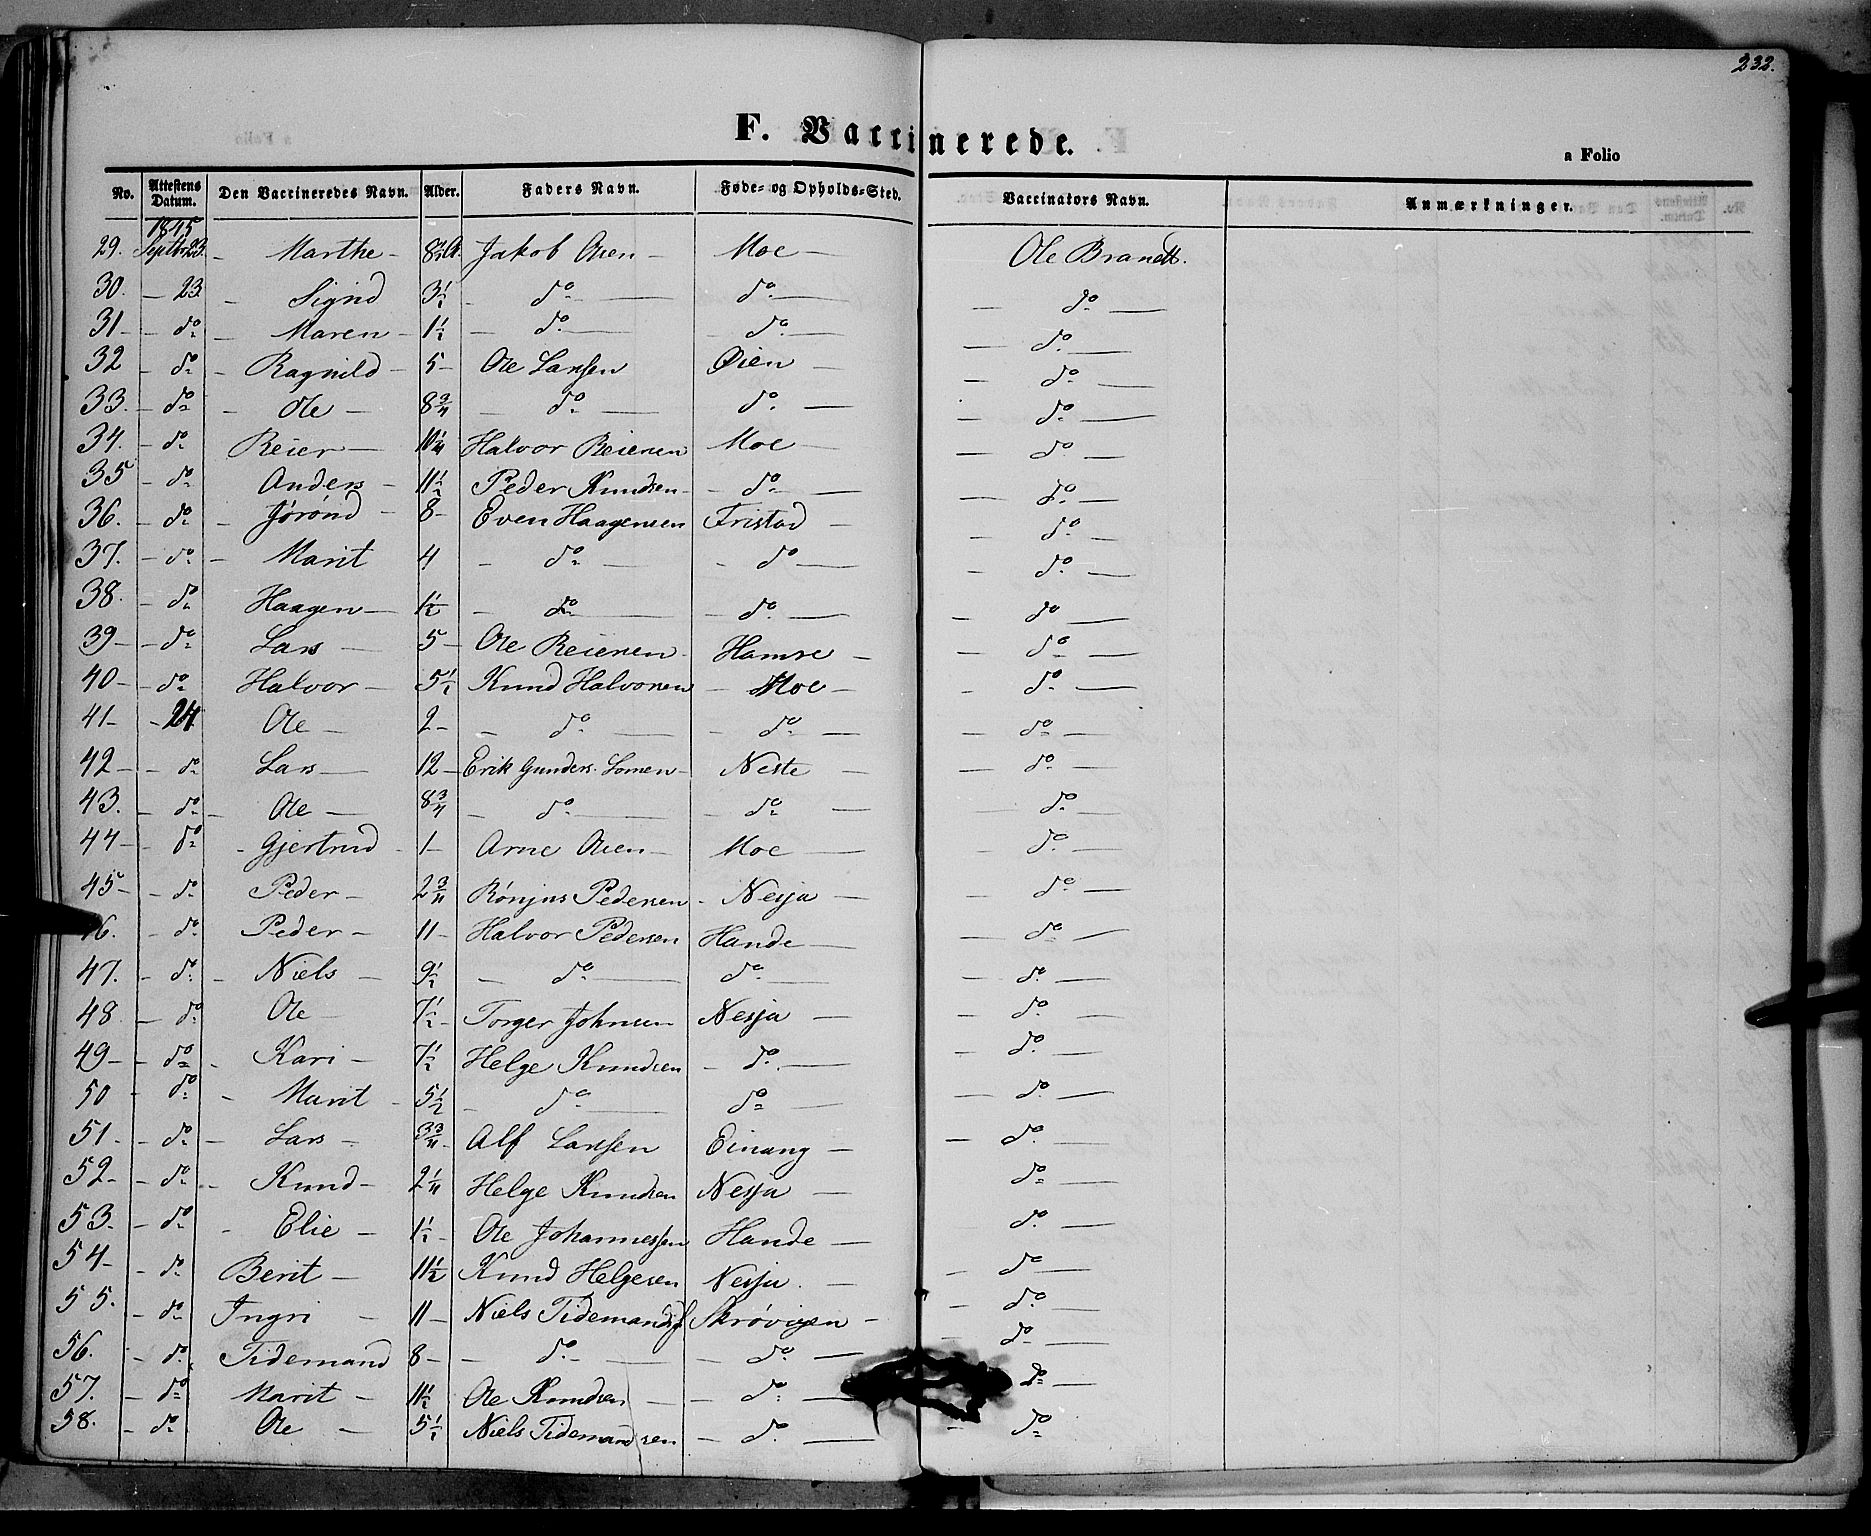 232.
F. Vaccinerede.
a Folio
No. Attestens Datum. Den Vaccineredes Navn. Alder. Faders Navn. Føde- og Opholds-Sted. Vaccinators Navn. Anmærkninger.
1845
29. Septbr 23. - Marthe - 8 Jakob Olsen - Moe - Ole Brandt.
30. - 23 - Sigrid 3½ - do - do. - - do -
31 - do - Maren - 1½ - do - do. - - do. -
32 - do - Ragnild - 5 - Ole Larssen Øien - - do -
33. - do - Ole - 8¾ - do - do. - - do -
34. - do Reier - 10¼ Halvor Reiersen Moe - - do -
35 - do Anders - 11½ Peder Knudsen - - do - - do -
36. - do - Jørønd - 8 - Even Haagensen Fristad - - do -
37. - do - Marit 4 - do - - do - - do. -
38. - do Haagen - 1½ - do - - do. - - do -
39 - - do Lars - 5 - Ole Reiersen - Hamre - - do -
40 - - do Halvor - 5½ Knud Halvorsen - Moe - - do -
41 - - 24 Ole - 2 - - do - - do - - do -
42 - - do Lars - 12 - Erik Gunders. Lomen - Neste - - do -
43. - do - Ole - 8¾ - do - - do - - do
44 - - do - Gjertrud - 1 - Arne Olsen - Moe - - do. -
45 - - do Peder - 2¾ Rønjus Pedersen - Nesja - - do -
46. - do Peder - 11 - Halvor Pedersen Hande - - do -
47. - do. Niels - 9½ - do - do. - - do. -
48 - do Ole - 7½ - Torger Johnsen Nesja - - do. -
49 - - do - Kari - 7½ Helge Knudsen - do. - - do. -
50 - do - Marit - 5½ - do - do - - do. -
51. - do - Lars - 3¾ - Alf Larssen Einang - - do. -
52 - - do - Knud - 2¼ Helge Knudsen Nesja - - do -
53. - do - Elie - 1½ - Ole Johannessen Hande - - do. -
54 - - do Berit - 11½ Knud Helgesen Nesja. - - do -
55. - do Ingri - 11 - Niels Tidemands Skrøvigen - - do -
56. - do. Tidemand 8 - - do - - do. - - do -
57. - do Marit - 11½ Ole Knudsen - - do. - do -
58. - do Ole - 5½ Niels Tidemandsen - do. - - do